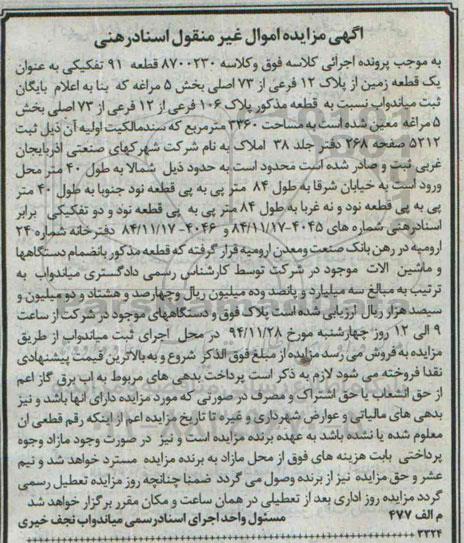 آگهی مزایده اموال غیر منقول اسناد رهنی
به موجب پرونده اجرائی کلاسه فوق وکلاسه ۸۷۰۰۲۳۰ قطعه ۹۱ تفکیکی به عنوان
یک قطعه زمین از پلاک ۱۲ فرعی از ۷۳ اصلی بخش ۵ مراغه که بنا به اعلام بایگان
ثبت میاندواب نسبت به قطعه مذکور پلاک ۱۰۶ فرعی از ۱۲ فرعی از ۷۳ اصلی بخش
۵ مراغه معین شده است به مساحت ۳۳۶۰ مترمربع که سندمالکیت اولیه آن ذیل ثبت
۵۲۱۲ صفحه ۲۶۸ دفتر جلد ۳۸ املاک به نام شرکت شهرکهای صنعتی اذربایجان
غربی ثبت و صادر شده است محدود است به حدود ذیل شمالا به طول ۴۰ متر محل
ورود است به خیابان شرقا به طول ۸۴ متر پی به پی قطعه نود جنوبا به طول ۴۰ متر
پی به پی قطعه نود و نه غربا به طول ۸۴ متر پی به پی قطعه نود و دو تفکیکی برابر
اسنادرهنی شماره های ۴۰۴۵-۸۴/۱۱/۱۷ و ۴۰۴۶-۸۴/۱۱/۱۷ دفترخانه شماره ۲۴
ارومیه در رهن بانک صنعت ومعدن ارومیه قرار گرفته که قطعه مذکور بانضمام دستگاهها
و ماشین الات موجود در شرکت توسط کارشناس رسمی دادگستری میاندواب به
ترتیب به مبالغ سه میلیارد و پانصد وده میلیون ریال وچهارصد و هشتاد و دو میلیون و
سیصد هزار ریال ارزیابی شده است پلاک فوق و دستگاههای موجود در شرکت از ساعت
۹ الی ۱۲ روز چهارشنبه مورخ ۹۴/۱۱/۲۸ در محل اجرای ثبت میاندواب از طریق
مزایده به فروش می رسد مزایده از مبلغ فوق الذکر شروع و به بالاترین قیمت پیشنهادی
نقدا فروخته می شود لازم به ذکر است پرداخت بدهی های مربوط به اب برق گاز اعم
از حق انشعاب یا حق اشتراک و مصرف در صورتی که مورد مزایده دارای انها باشد و نیز
بدهی های مالیاتی و عوارض شهرداری و غیره تا تاریخ مزایده اعم از اینکه رقم قطعی ان
معلوم شده یا نشده باشد به عهده برنده مزایده است و نیز در صورت وجود مازاد وجوه
پرداختی بابت هزینه های فوق از محل مازاد به برنده مزایده مسترد خواهد شد و نیم
عشر و حق مزایده نیز از برنده وصول می گردد ضمنا چنانچه روز مزایده تعطیل رسمی
گردد مزایده روز اداری بعد از تعطیلی در همان ساعت و مکان مقرر برگزار خواهد شد
م الف ۴۷۷ مسئول واحد اجرای اسناد رسمی میاندواب نجف خیری
۳۳۲۴